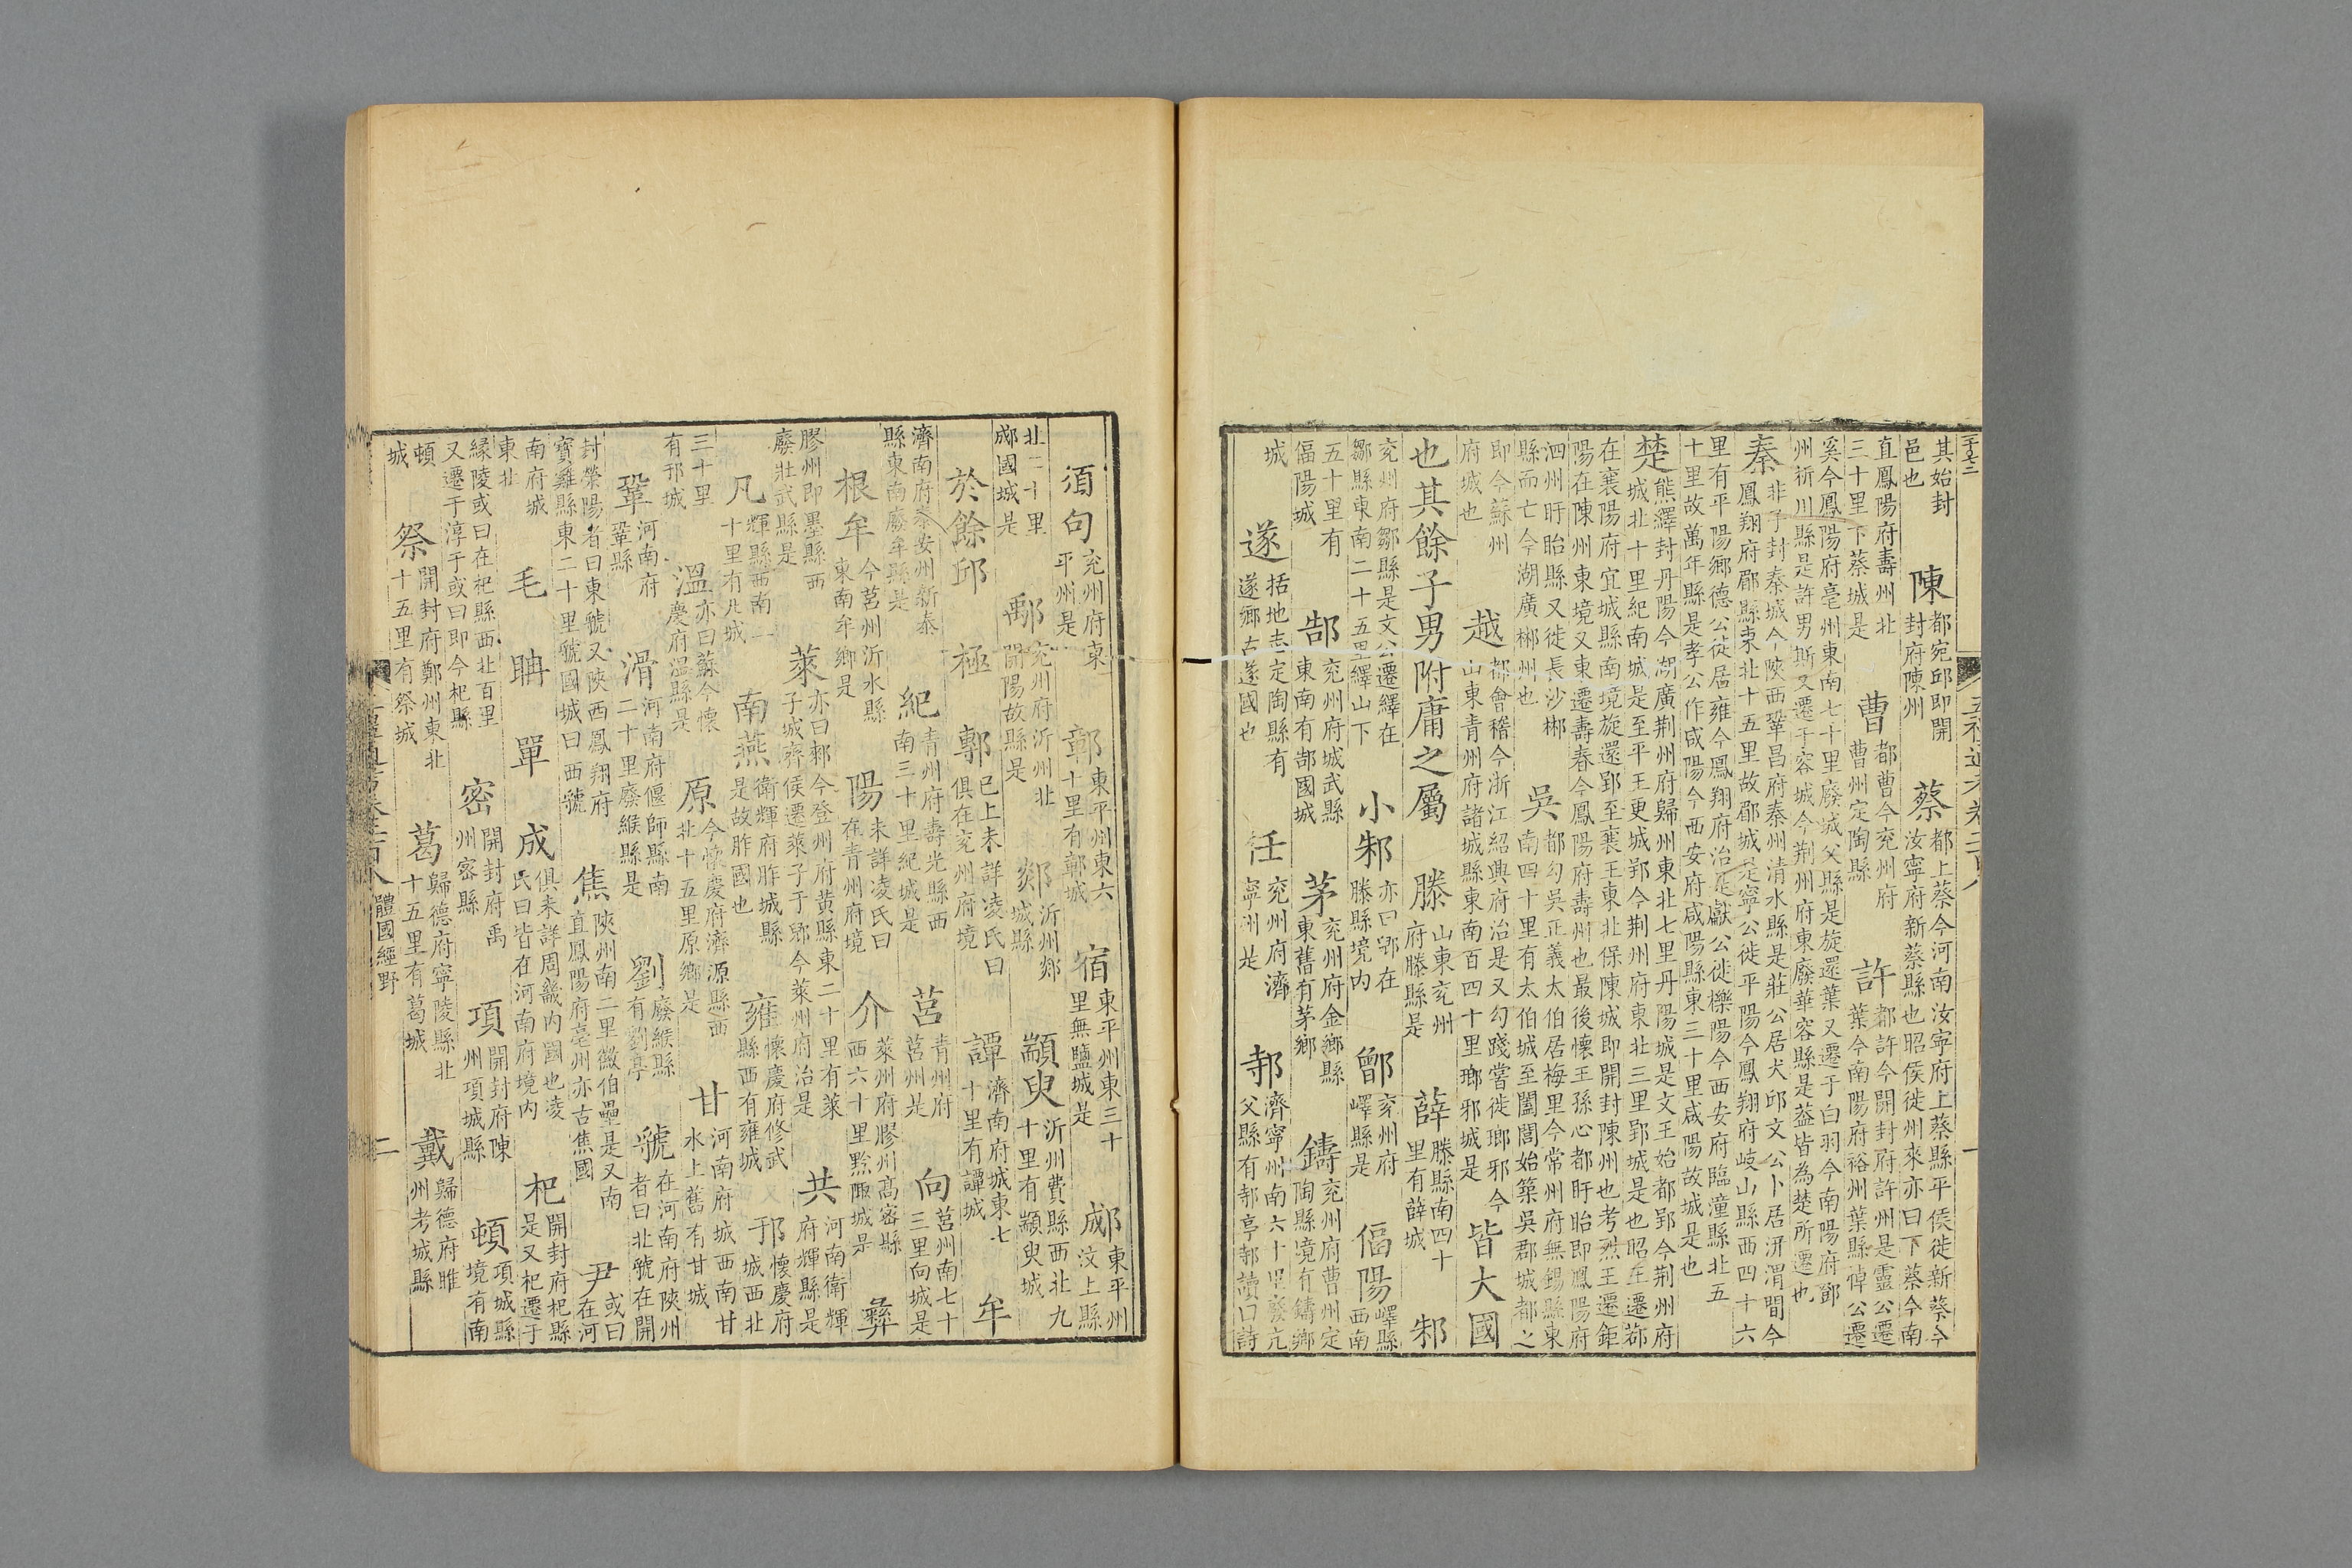 其始封邑也　陳都宛邱即開封府陳州　蔡都上蔡今河南汝寜府上蔡縣平侯徙新蔡今汝寧府新蔡縣也昭侯徙州來亦曰下蔡今南
直鳳陽府壽州北三十里下蔡城是　曹都曹今兖州府曹州定陶縣　許都許今開封府許州是靈公遷葉今南陽府裕州葉縣悼公遷
奚今鳳陽府亳州東南七十里廢城父縣是旋還葉又遷于白羽今南陽府鄧州析川縣是許男斯又遷于容城今荆州府東廢華容縣是葢皆為楚所遷也
秦非子封秦城今陝西鞏昌府秦州清水縣是莊公居犬邱文公卜居汧渭間今鳳翔府郿縣東北十五里故郿城是寧公徙平陽今鳳翔府岐山縣西四十六
里有平陽鄉德公徙居雍今鳳翔府治是獻公徙櫟陽今西安府臨潼縣北五十里故萬年縣是孝公作咸陽今西安府咸陽縣東三十里咸陽故城是也
楚熊繹封丹陽今湖廣荆州府歸州東北七里丹陽城是文王始都郢今荆州府城北十里紀南城是至平王更城郢今荆州府東北三里郢城是也昭王遷鄀
在襄陽府宜城縣南境旋還郢至襄王東北保陳城即開封陳州也考烈王遷鉅陽在陳州東境又東遷壽春今鳳陽府壽州也最後懷王孫心都盱眙即鳳陽府
泗州盱眙縣又徙長沙郴縣而亡今湖廣郴州也　吳都勾吳正義太伯居梅里今常州府無錫縣東南四十里有太伯城至闔閭始築吳郡城都之
即今蘇州府城也　越都會稽今浙江紹興府治是又勾踐嘗徙瑯邪今山東青州府諸城縣東南百四十里瑯邪城是　皆大國
也其餘子男附庸之屬　滕山東兖州府滕縣是　薛滕縣南四十里有薛城　邾
兖州府鄒縣是文公遷繹在鄒縣東南二十五里繹山下　小邾亦曰郳在滕縣境內　鄫兖州府嶧縣是　偪陽嶧縣西南
五十里有偪陽城　郜兖州府城武縣東南有郜國城　茅兖州府金鄉縣東舊有茅鄉　鑄兖州府曹州定陶縣境有鑄鄉
城　遂括地志定陶縣有遂鄉古遂國也　任兖州府濟寧州是　邿濟寧州南六十里廢亢父縣有邿亭邿讀曰詩
須句兖州府東平州是　鄣東平州東六十里有鄣城　宿東平州東三十里無鹽城是　郕東平州汶上縣
北二十里郕國城是　鄅兖州府沂州北開陽故縣是　郯沂州郯城縣　顓臾沂州費縣西北九十里有顓臾城
於餘邱　極　鄟已上未詳凌氏曰俱在兖州府境　譚濟南府城東七十里有譚城　牟
濟南府泰安州新泰縣東南廢牟縣是　紀青州府壽光縣西南三十里紀城是　莒青州府莒州是　向莒州南七十三里向城是
根牟今莒州沂水縣東南牟鄉是　陽未詳凌氏曰在青州府境　介萊州府膠州高密縣西六十里黔陬城是　彝
膠州即墨縣西廢壯武縣是　萊亦曰郲今登州府黃縣東二十里有萊子城齊侯遷萊子于郳今萊州府治是　共河南衛輝府輝縣是
凡輝縣西南二十里有凡城　南燕衛輝府胙城縣是故胙國也　雍懷慶府修武縣西有雍城　邘懷慶府城西北
三十里有邘城　溫亦曰蘇今懷慶府溫縣是　原今懷慶府濟源縣西北十五里原鄉是　甘河南府城西南甘水上舊有甘城
鞏河南府鞏縣　滑河南府偃師縣南二十里廢緱縣是　劉廢緱縣有劉亭　虢在河南府陝州者曰北虢在開
封滎陽者曰東虢又陝西鳳翔府寶雞縣東二十里虢國城曰西虢　焦陝州南二里徽伯壘是又南直鳳陽府亳州亦古焦國　尹或曰在河
南府城東北　毛　聃　單　成俱未詳周畿內國也凌氏曰皆在河南府境內　杞開封府杞縣是又杞遷于
緣陵或曰在杞縣西北百里又遷于淳于或曰即今杞縣　密開封府禹州密縣　項開封府陳州項城縣　頓項城縣境有南
頓城　祭開封府鄭州東北十五里有祭城　葛歸德府寧陵縣北十五里有葛城　戴歸德府睢州考城縣
體國經野　二